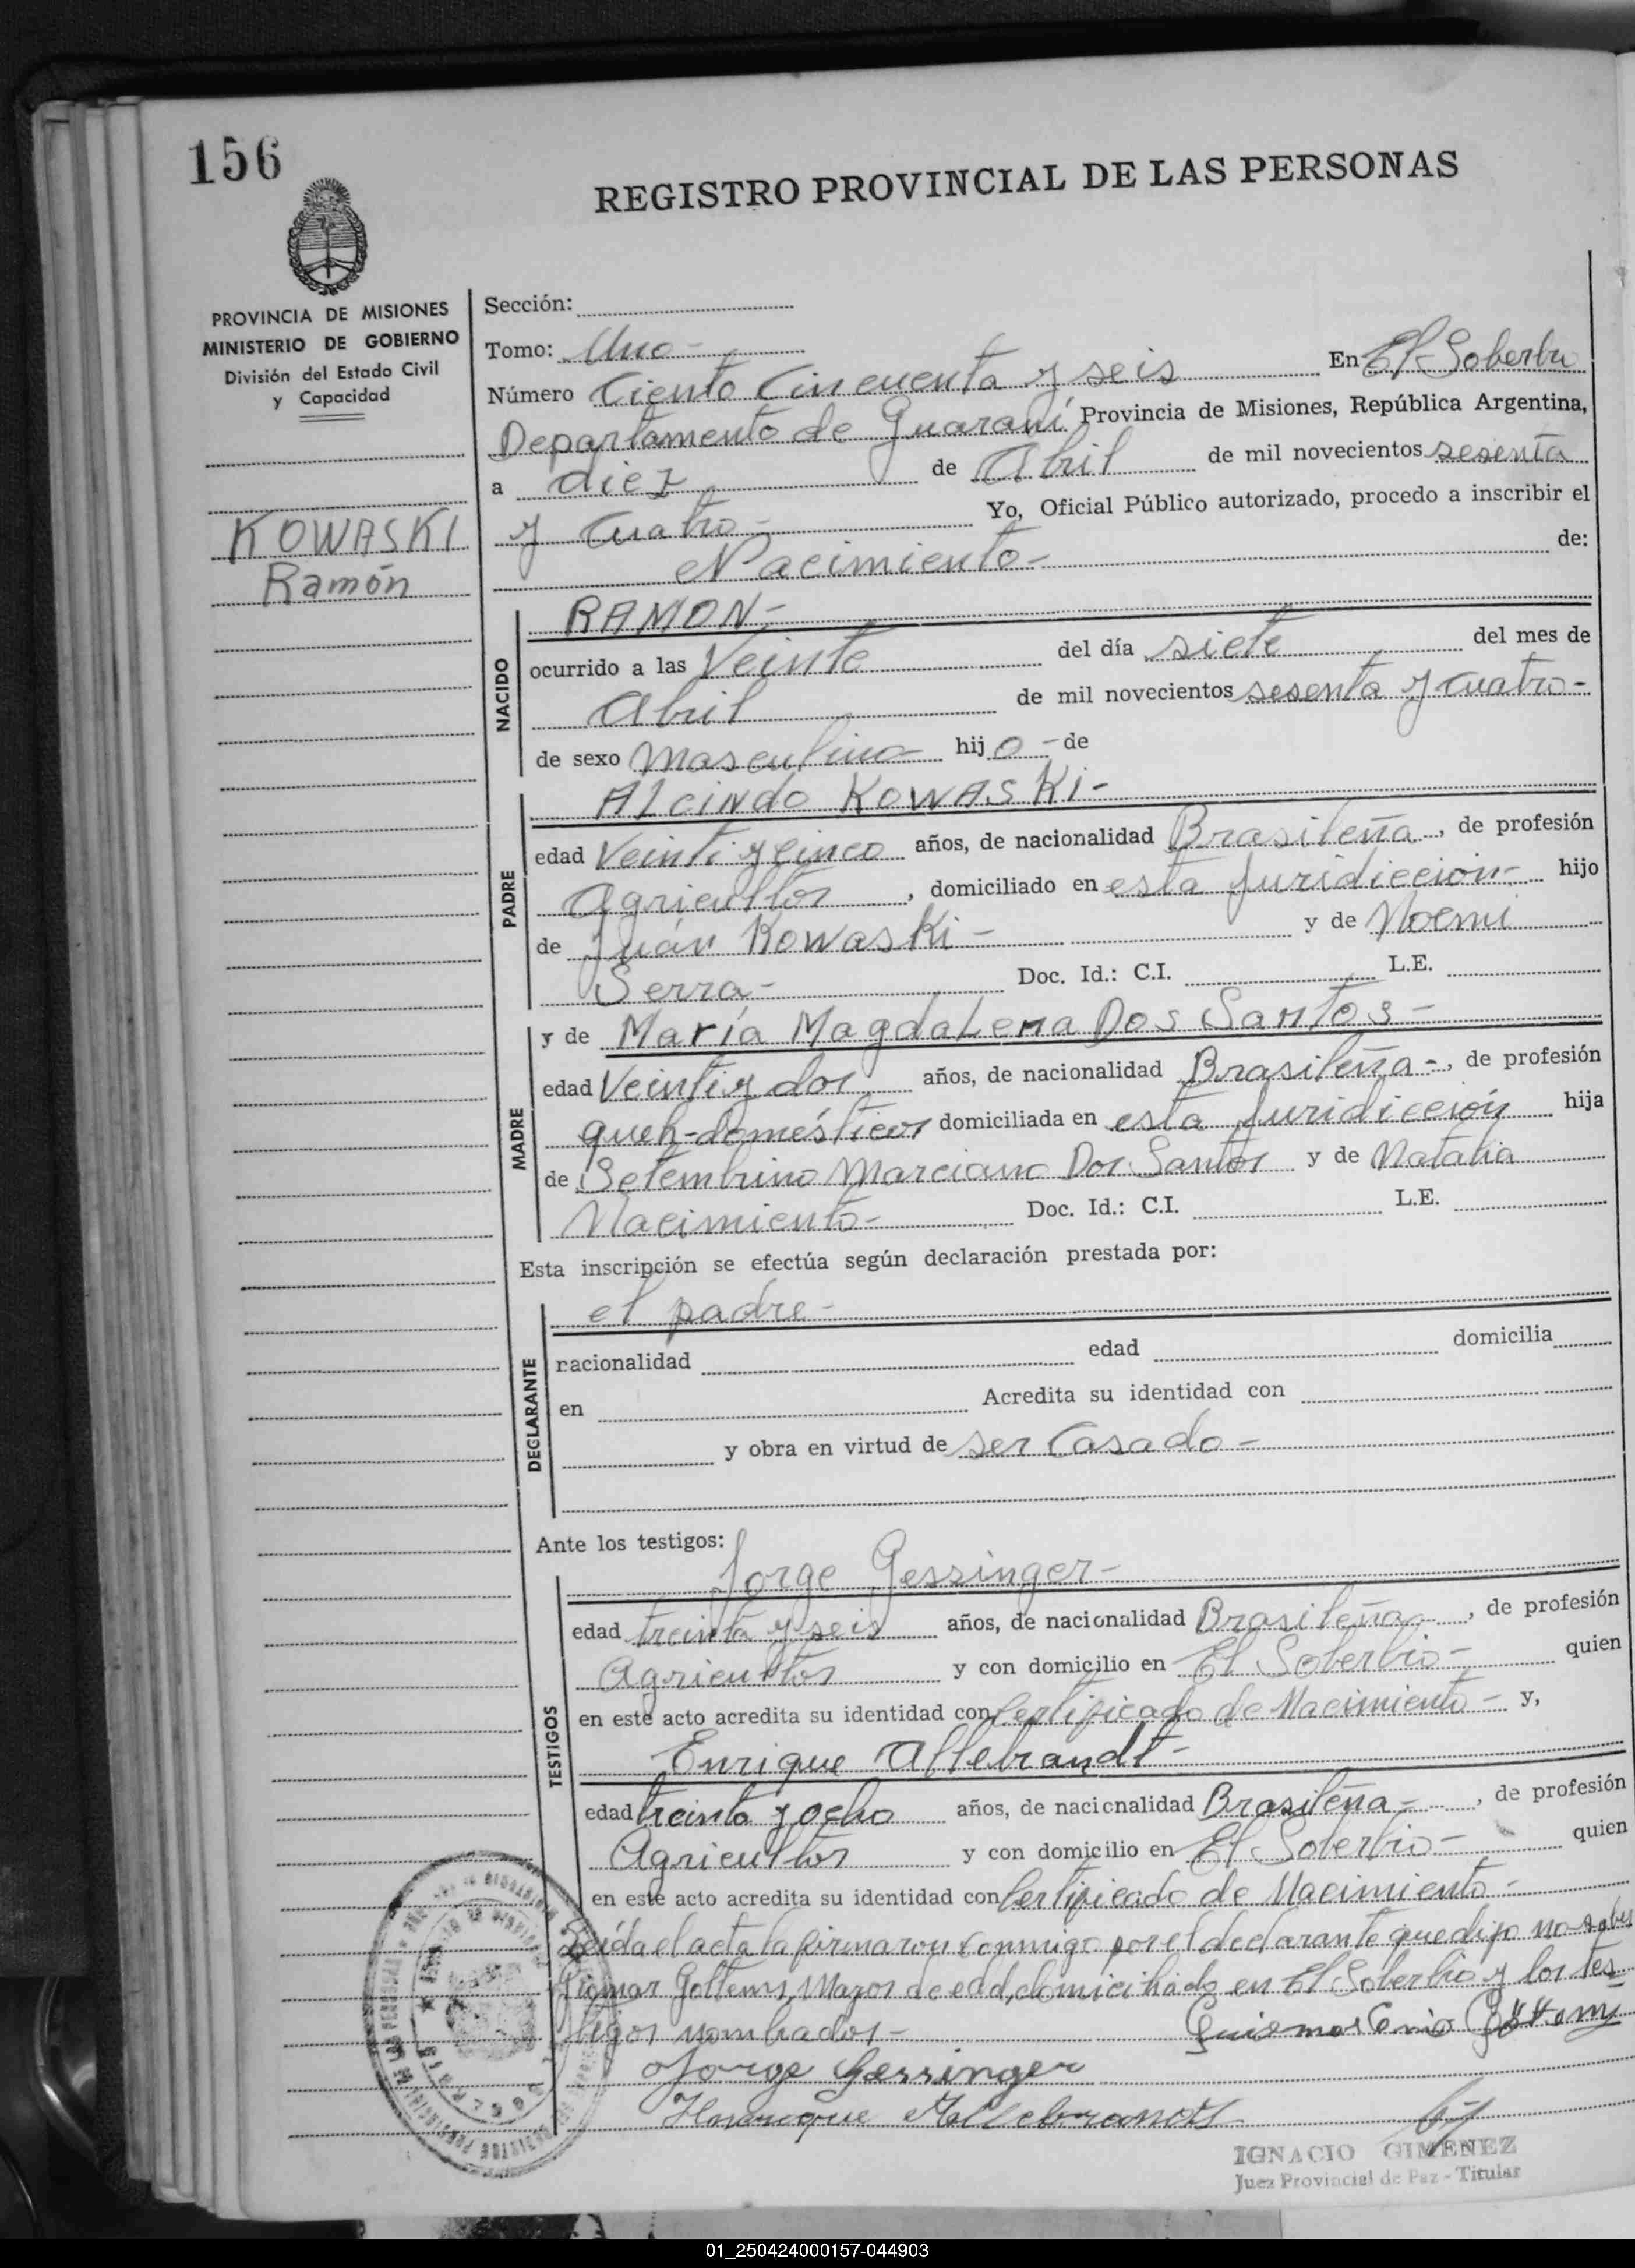 156
REGISTRO PROVINCIAL DE LAS PERSONAS
PROVINCIA DE MISIONES
MINISTERIO DE GOBIERNO
División del Estado Civil
y Capacidad
KOWASKI
Ramón
Sección:
Tomo: Uno-
Número Ciento Cincuenta y seis En El Soberbio
Departamento de Guaraní Provincia de Misiones, República Argentina,
a diez de Abril de mil novecientos sesenta
y Cuatro- Yo, Oficial Público autorizado, procedo a inscribir el
Nacimiento- de:
NACIDO
RAMON-
ocurrido a las Veinte del día siete del mes de
Abril de mil novecientos sesenta y cuatro-
de sexo Masculino hijo - de
PADRE
ALcindo KowasKi-
edad Veinti y cinco años, de nacionalidad Brasileña, de profesión
Agricultor, domiciliado en esta Juridiccion- hijo
de Juán KowasKi- y de Noemi
Serra- Doc. Id.: C.I. L.E.
MADRE
y de María MagdaLena Dos Santos-
edad Veinti y dos años, de nacionalidad Brasileña-, de profesión
queh-domésticos domiciliada en esta Juridicción hija
de Setembrino Marciano Dos Santos y de Natalia
Nacimiento- Doc. Id.: C.I. L.E.
Esta inscripción se efectúa según declaración prestada por:
DECLARANTE
el padre-
nacionalidad edad domicilia
en Acredita su identidad con
y obra en virtud de ser Casado-
Ante los testigos:
TESTIGOS
Jorge Gessinger-
edad treinta y seis años, de nacionalidad Brasileña, de profesión
Agricultor y con domicilio en El Soberbio- quien
en este acto acredita su identidad con Certificado de Nacimiento- y,
Enrique Allebrandt-
edad treinta y ocho años, de nacionalidad Brasileña-, de profesión
Agricultor y con domicilio en El Soberbio- quien
en este acto acredita su identidad con Certificado de Nacimiento-
Leída el acta la firmaron conmigo por el declarante que dijo no saber
Mayor de edad, domiciliado en El Soberbio y los tes
tigos nombrados-
Jorge Gessinger
IGNACIO GIMENEZ
Juez Provincial de Paz - Titular
01_250424000157-044903